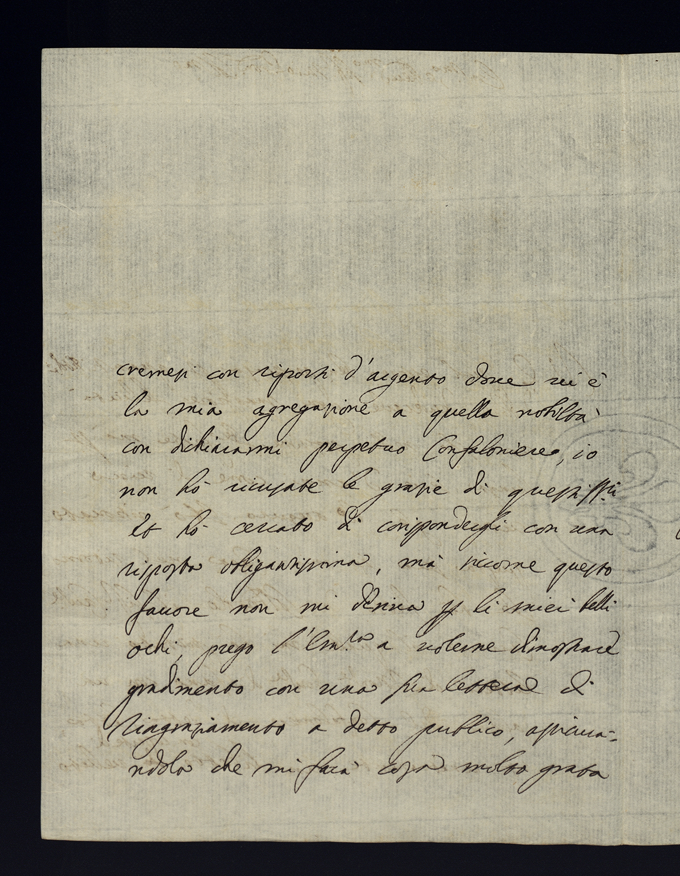 cremesi con riporti d'argento dove vi è
la mia agregazione a quella nobiltà
con dichiararmi perpetuo Confaloniere, io
non hò ricusate le grazie di questi SS.ri
et hò cercato di corrisponderli con una
risposta obligantissima, mà siccome questo
favore non mi deriva p li miei belli
ochi, prego l'Em.za a volerne dimostrare
gradimento con una sua lettera di
ringraziamento a detto publico, assicura=
ndola che mi farà cosa molto grata